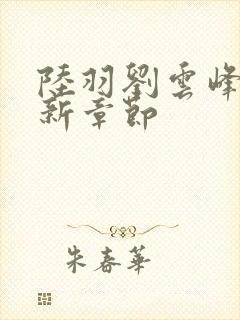 陸羽劉雲峰
新章節
朱春華